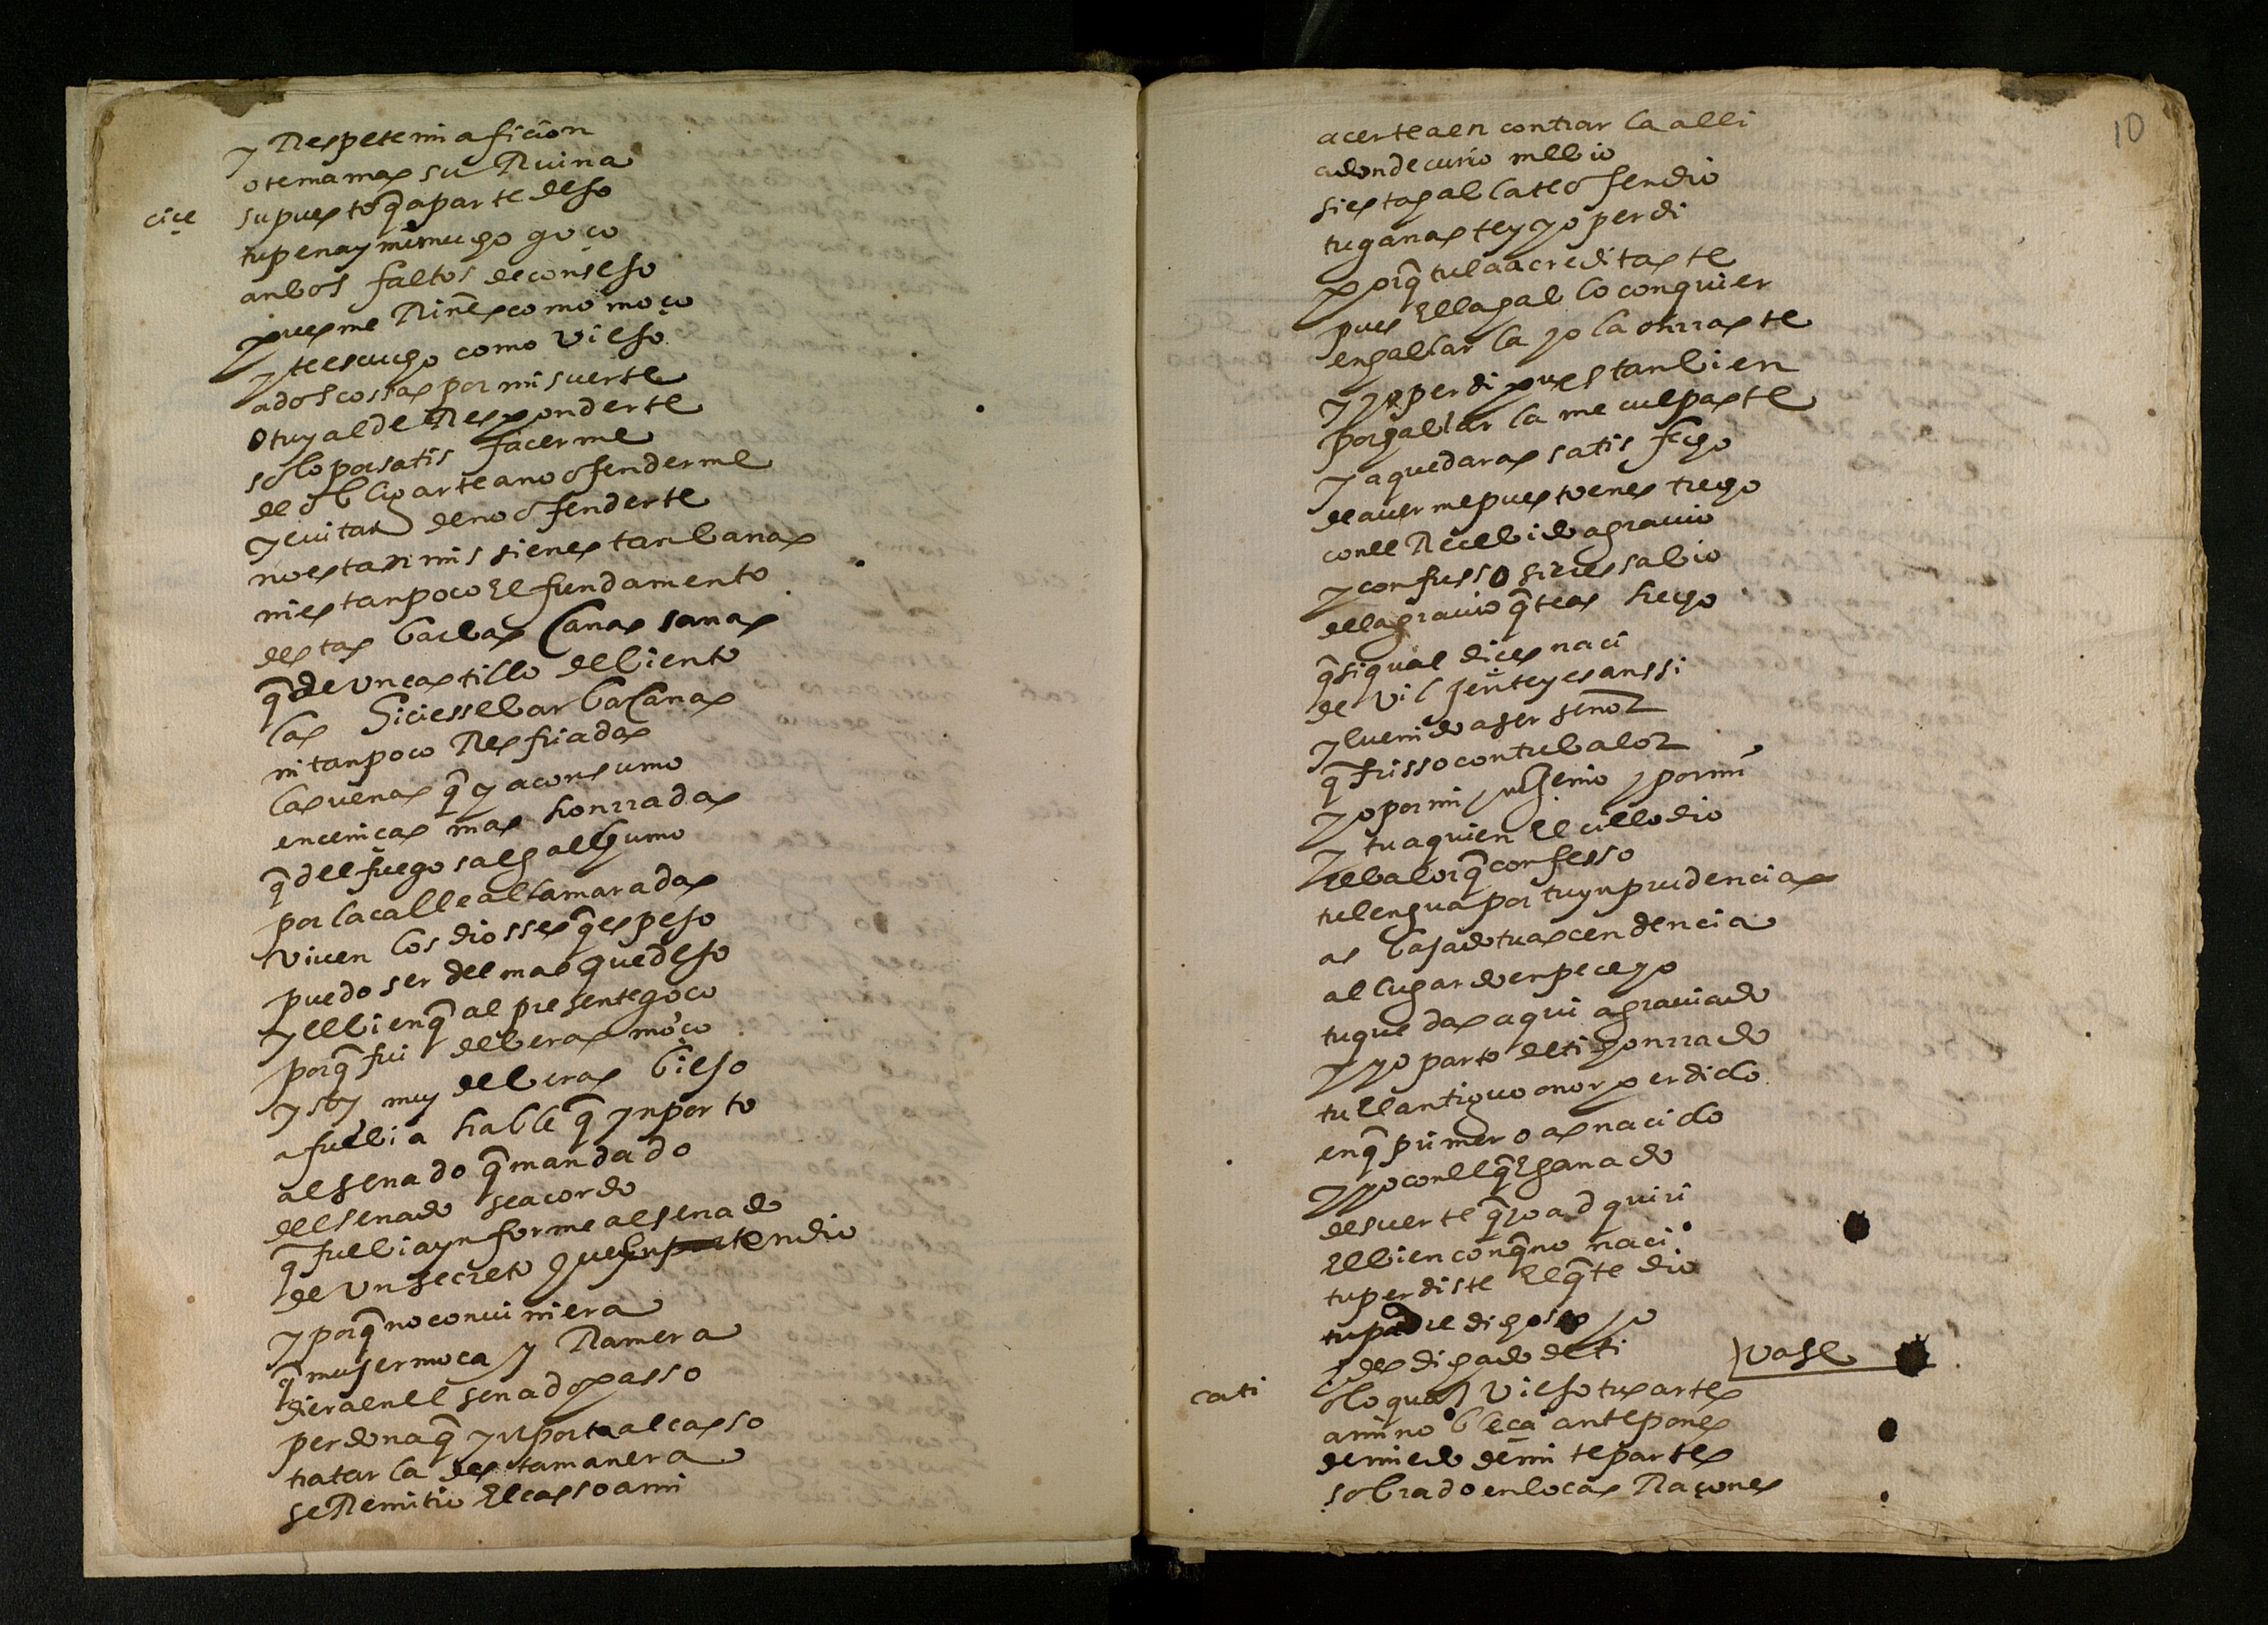 y Respete mi aficion
o tema mas su Ruina
cice supuesto q̃ aparte dejo
tu pena y mi mucho goço
anbos faltos de consejo
pues me Riñes como moço
y te escucho como viejo
a dos cossas por mi suerte
o tuyal de Responderte
solo por satisfacerme
de obligarte a no ofenderme
y evitar de no ofenderte
no estan mis sienes tan banas
ni es tanpoco el fundamento
destas barbas canas sanas
q̃ de un castillo de biento
las hiciesse barbacanas
ni tanpoco Resfriadas
las venas q̃ ya consumo
en ceniças mas honrradas
q̃ del fuego salga el humo
por la calle a llamaradas
viven los diosses q̃ espejo
puedo ser del mas que dejo
y el bien q̃ al presente goço
porq̃ fui de beras moço
y soy muy de beras biejo
a fulbia hable q̃ ynporto
al senado q̃ mandado
del senado se acordo
q̃ fulbia ynforme al senado
de un secreto que entendio
y porq̃ no conviniera
q̃ mujer moça y Ramera
diera en el senado passo
persona q̃ ynporta al casso
tratarla desta manera
se Remitio el casso a mi
10
acerte a encontrar la alli
adonde curio me bio
si estas hablarte ofendio
tu ganaste y yo perdi
porq̃ tu la acreditaste
pues ella hablo con quien
en hablarla yo la onrraste
y yo perdi pues tanbien
por hablarla me culpaste
ya quedaras satisfecho
de aver me puesto en estrecho
con el Recebido agravio
y confusso si eres sabio
del agravio q̃ te as hecho
q̃ si qual dices naci
de vil jente y es anssi
y e venido a ser señor
q̃ frisso con tu balor
yo por mi yngenio y por mi
y tu a quien el cielo dio
el balor q̃ confesso
tu lengua por tu ynprudencia
as bajado tu ascendencia
al lugar do enpece yo
tu quedas aqui agraviado
y yo parto de ti honrrado
tu el antiguo onor perdido
en q̃ primero as nacido
y yo con el q̃ e ganado
de suerte q̃ yo adquiri
el bien con q̃ no naci
tu perdiste el q̃ te dio
tu padre dichoso yo
y desdichado de ti vase
cati o loquaz viejo tus artes
a mi nobleça antepones
de miedo de mi te partes
sobrado en locas Raçones